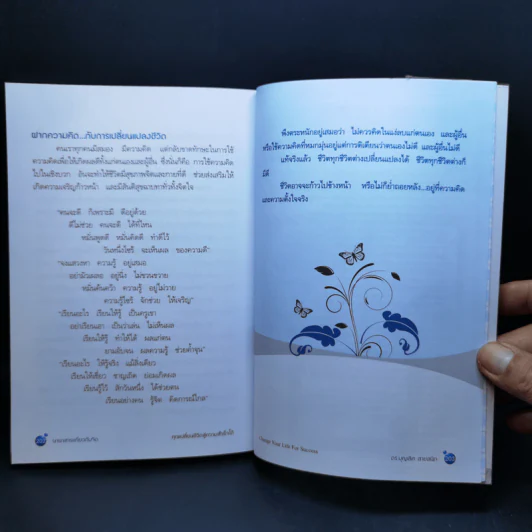 ฝากความคิด...กับการเปลี่ยนแปลงชีวิต
คนเราทุกคนมีสมอง มีความคิด แต่กลับขาดทักษะในการใช้
ความคิดเพื่อให้เกิดผลดีทั้งแก่ตนและผู้อื่น ซึ่งนั่นก็คือ การใช้ความคิด
ไปในเชิงบวก อันจะทำให้ชีวิตมีสุขภาพจิตและกายที่ดี ช่วยส่งเสริมให้
เกิดความเจริญก้าวหน้า และมีสันติสุขมาบทาทั่วทั้งจิตใจ
"คนจะดี ก็เพราะมี ดีอยู่ด้วย
ดีไม่ช่วย คนจะดี ได้ที่ไหน
หมั่นพูดดี หมั่นคิดดี ทำดีไว้
วันหนึ่งไซร้ จะเห็นผล ของความดี"
"จงแสวงหา ความรู้ อยู่เสมอ
อย่ามัวเผลอ อยู่นิ่ง ไม่ขวนขวาย
หมั่นค้นคว้า ความรู้ อยู่ไม่วาย
ความรู้ไซร้ จักช่วย ให้เจริญ"
"เรียนอะไร เรียนให้รู้ เป็นครูเขา
อย่าเรียนเอา เป็นว่าเล่น ไม่เห็นผล
เรียนให้รู้ ทำให้ได้ ผลแก่ตน
ยามอับจน ผลความรู้ ช่วยค้ำจุน"
"เรียนอะไร ให้รู้จริง แม้สิ่งเดียว
เรียนให้เชี่ยว ชาญเถิด ย่อมเกิดผล
เรียนรู้ไว้ สักวันหนึ่ง ได้ช่วยตน
เรียนอย่างคน รู้จิต คิดการณ์ไกล"
พึงตระหนักอยู่เสมอว่า ไม่ควรคิดในแง่ลบแก่ตนเอง และผู้อื่น
หรือใช้ความคิดที่หมกมุ่นอยู่แต่การติเตียนว่าตนเองไม่ดี และผู้อื่นไม่ดี
แท้จริงแล้ว ชีวิตทุกชีวิตต่างเปลี่ยนแปลงได้ ชีวิตทุกชีวิตต่างก็
มีดี
ชีวิตอาจจะก้าวไปข้างหน้า หรือไม่ก็ย่ำถอยหลัง...อยู่ที่ความคิด
และความตั้งใจจริง
Change Your Life For Success